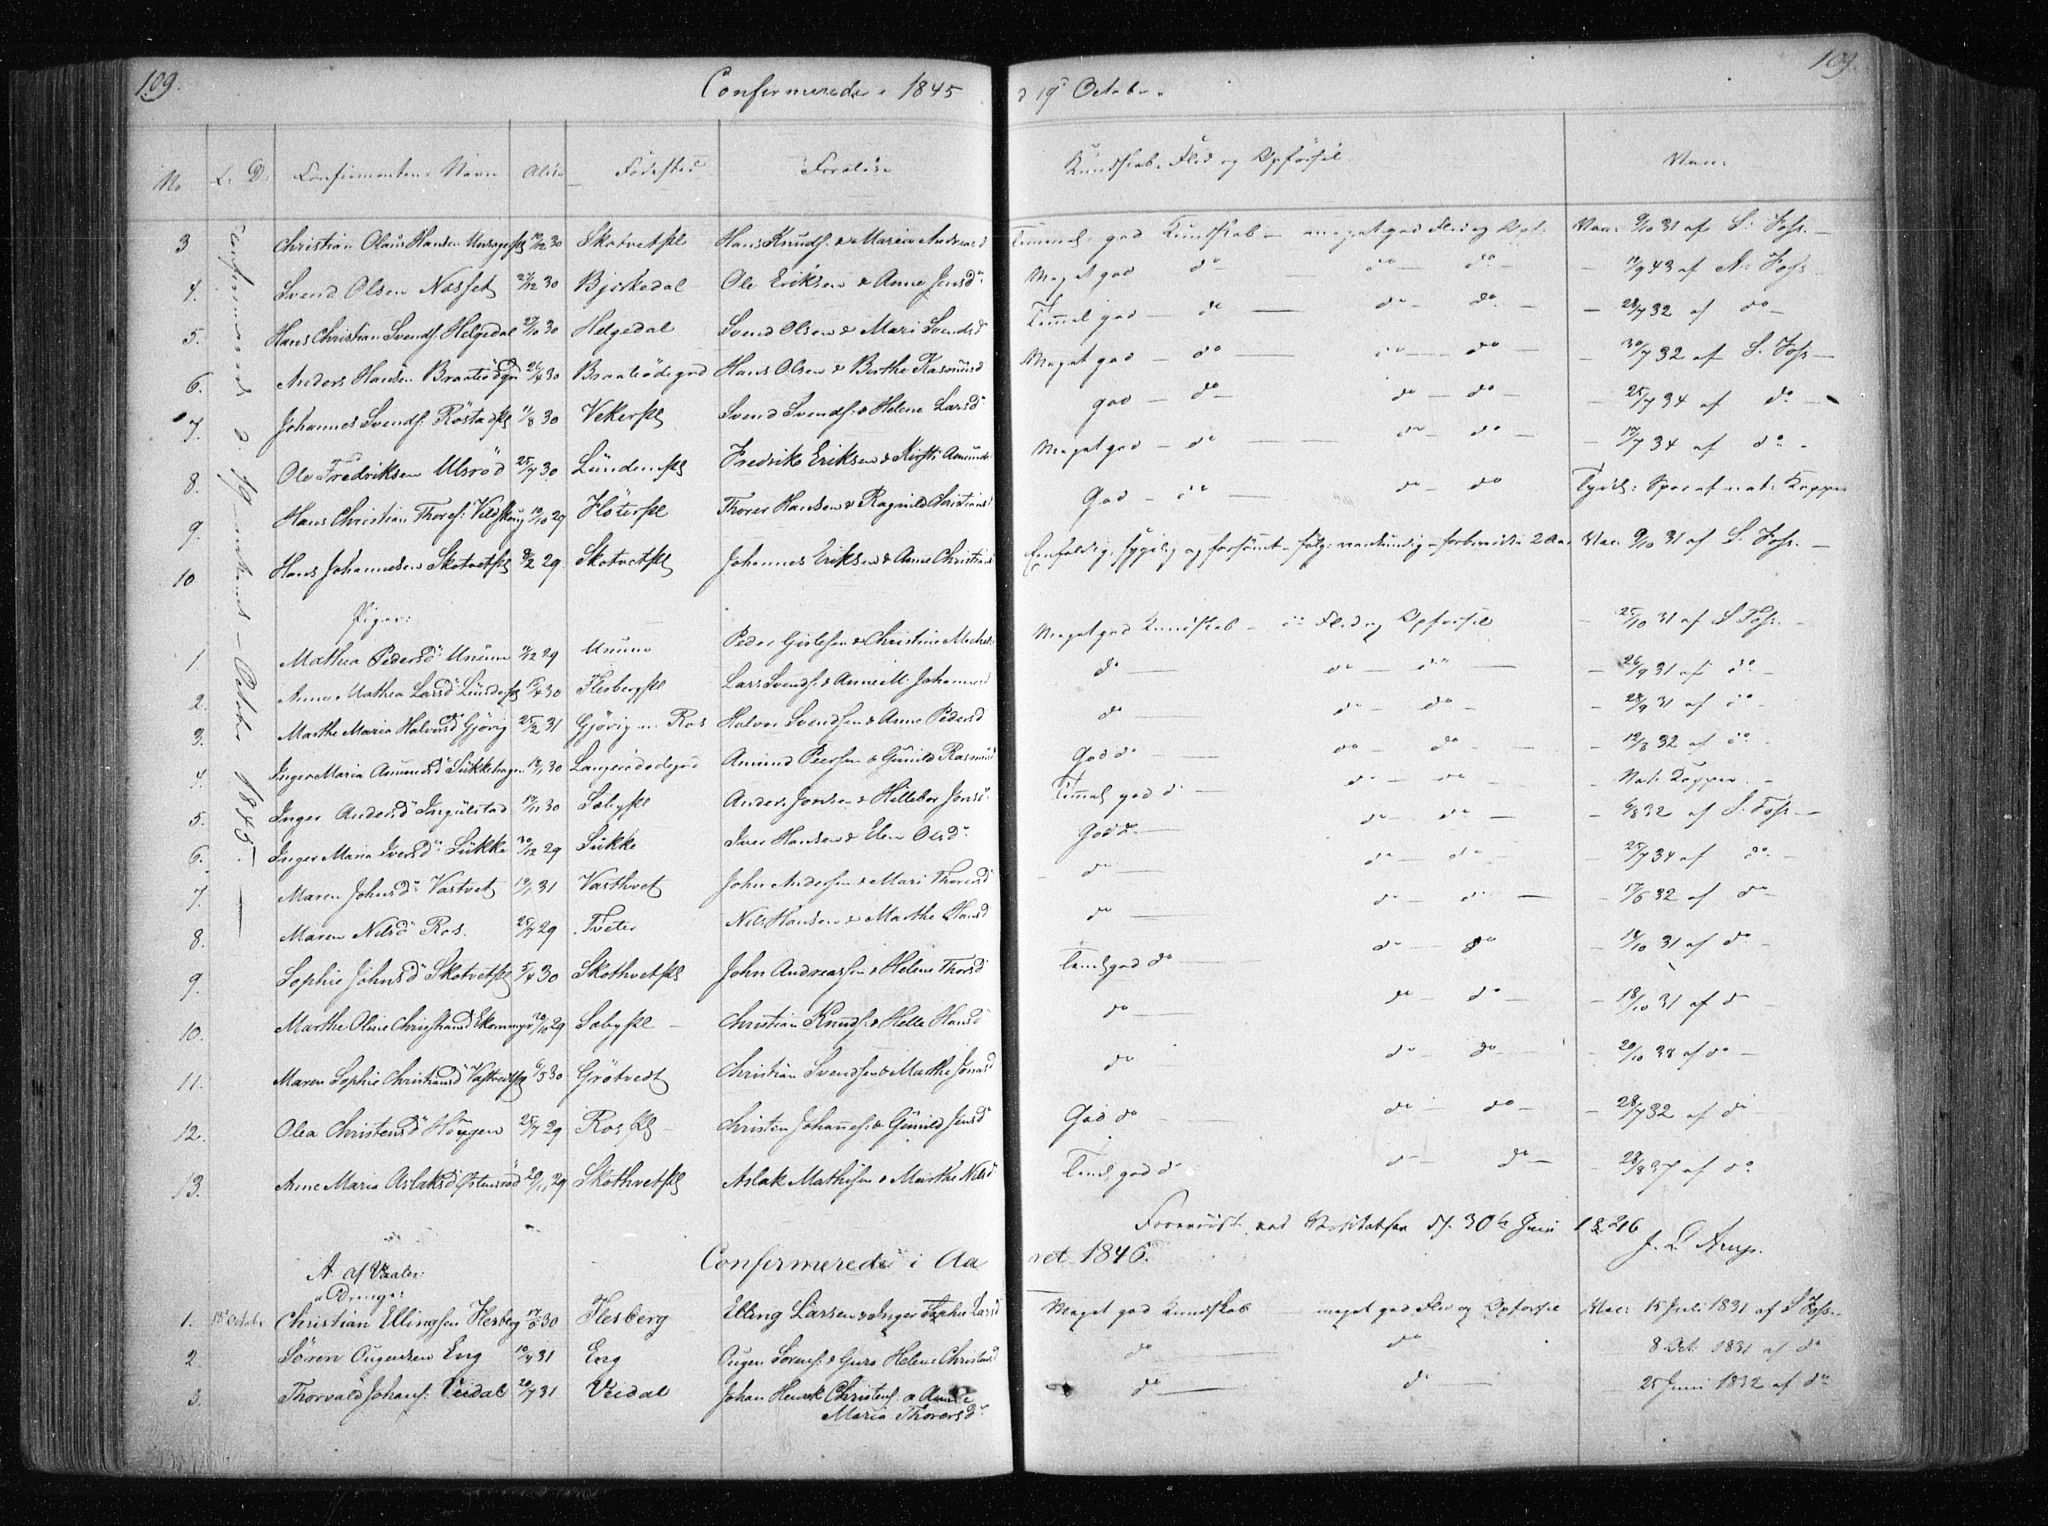 109. Confirmerede i 1845 d 19d October. 109.
No L. D. Confirmantens Navn Alder Fødested Forældre Kundskab, Flid og Opførsel. Vac:
Confirmered d. 19 October 1845.
3 Christian Olaus Hansen 30 Skotvetpl Hans Knuds. & Maria Andreasd Temmel. god Kundskab – meget god Flid og Opf. Vac: 9/10 31 af S. Fohs. –
4. Svend Olsen Nasset 27/12 30 Bjerkedal Ole Eriksen & Anne Jensd: Meget god do – do – do – 17/9 43 af A: Fohs –
5. Hans Christian Svends. Helgedal 27/10 30 Helgedal Svend Olsen & Mari Svendsd Temmel god – do – do – do – 28/7 32 af do –
6. Anders Hansen Braatødegd 26/4 30 Braatødegod Hans Olsen & Berthe Rasmusd Meget god – do – do – do – 30/7 32 af S. Fohs –
7. Johannes Svends: Röstadpl 11/8 30 Vekerpl Svend Svends: & Helene Larsd: god – do – do – do – 25/7 34 af do –
8. Ole Fredriksen Ulsröd 25/7 30 Lundenpl Fredrik Eriksen & Kirsti Amundsd Meget god – do – do – do – 17/7 34 af do –
9. Hans Christian Thores. 19/10 29 Höterpl Thorer Hansen & Ragnild Christiansd God – do – do – do Tydel: Spor af nat: Kopper
10 Hans Johannesen Skotvetpl 9/2 29 Skotvetpl Johannes Eriksen & Anne Christiansd Eenfoldig, sygelig og forsømt – følg: vankundig – forberedt 2 Aar Vac: 9/10 31 af S. Fohs. –
Piger:
1. Mathea Pedersd: Unum 29 Unum Peder Gislesen & Christine Meget god Kundskab – do Flid og Opførsel – 25/10 31 af S Fohs. –
2. Anne Mathea Larsd: 30 Flesbergpl Lars Svends: & Anne M. Johannesd do – do – do – 26/9 31 af do –
3. Marthe Maria Halvorsd Gjövig 25/2 31 Gjövig u. Ros Halvor Svendsen & Anne Pedersd do – do – do – 28/9 31 af do –
4. Inger Maria Amundsd Sukkehagen 30 Langerödødegod Amund Peersen & Gunild Rasmusd God do – do – do – 12/8 32 af do –
5. Inger Andersd Ingulstad 17/11 30 Sæbypl Anders Jonsen & Hillebor Jonsd: Temmel god d: – do – do – Nat. Kopper. –
6. Inger Maria Iversd: Sukke 30/12 29 Sukke Iver Hansen & Elen Olsd: God do – do – do – 6/8 32 af S. Fohs. –
7. Maren Johnsd: Vastvet 31 Vasthvet John Andersen & Mari Thoresd do – do – do – 25/7 34 af do –
8. Maren Nilsd Ros. 25/7 29 Tveter Nils Hansen & Marthe Hansd do – do – do – 17/6 32 af do –
9. Sophie Johnsd Skotvetpl 5/4 30 Skothvetpl John Andreassen & Helene Thorsd Temel god do – do – do – 18/10 31 af do –
10. Marthe Oline 29 Sæbypl – Christian Knuds: & Helle Hansd do – do – do – 18/10 31 af d –
11. Maren Sophie Christiansd Vastvedtpl 6/5 30 Grötvedt Christian Svendsen & Marthe Jonasd do – do – do – 20/10 38 af do –
12. Olea Christensd Höygen 25/7 29 Ros pl – Christen Johannes: & Gunild Jensd: God do – do – do – 28/7 32 af do –
13. Anne Maria Aslaksd Østensröd 29/11 29 Skothvetpl Aslak Mathisen & Marthe Nilsd Temel, god do – do – do – 28/8 37 af do
Foreviist ved Visitatsen d. 30te Juni 1846 J. L. Arup.
Confirmerede i Aaret 1846.
A af Vaaler:
Drenge:
1. Octobr Christian Ellingsen Flesberg 30 Flesberg Elling Larsen & Inger Sophie Larsd Meget god Kundskab – meget god Flid og Opførsel Vac: 15 Juli 1831 af S Fohs. –
2. Sören Ougensen Eng 10/4 31 Eng Ougen Sörens: & Guro Helene Christensd do – do – 8 Oct 1831 af do
3. Thorvald Johans: Veidal 20/7 31 Veidal Johan Henrik Christens. & Anne Maria Thorersd: do – do – 25 Juni 1832 af do